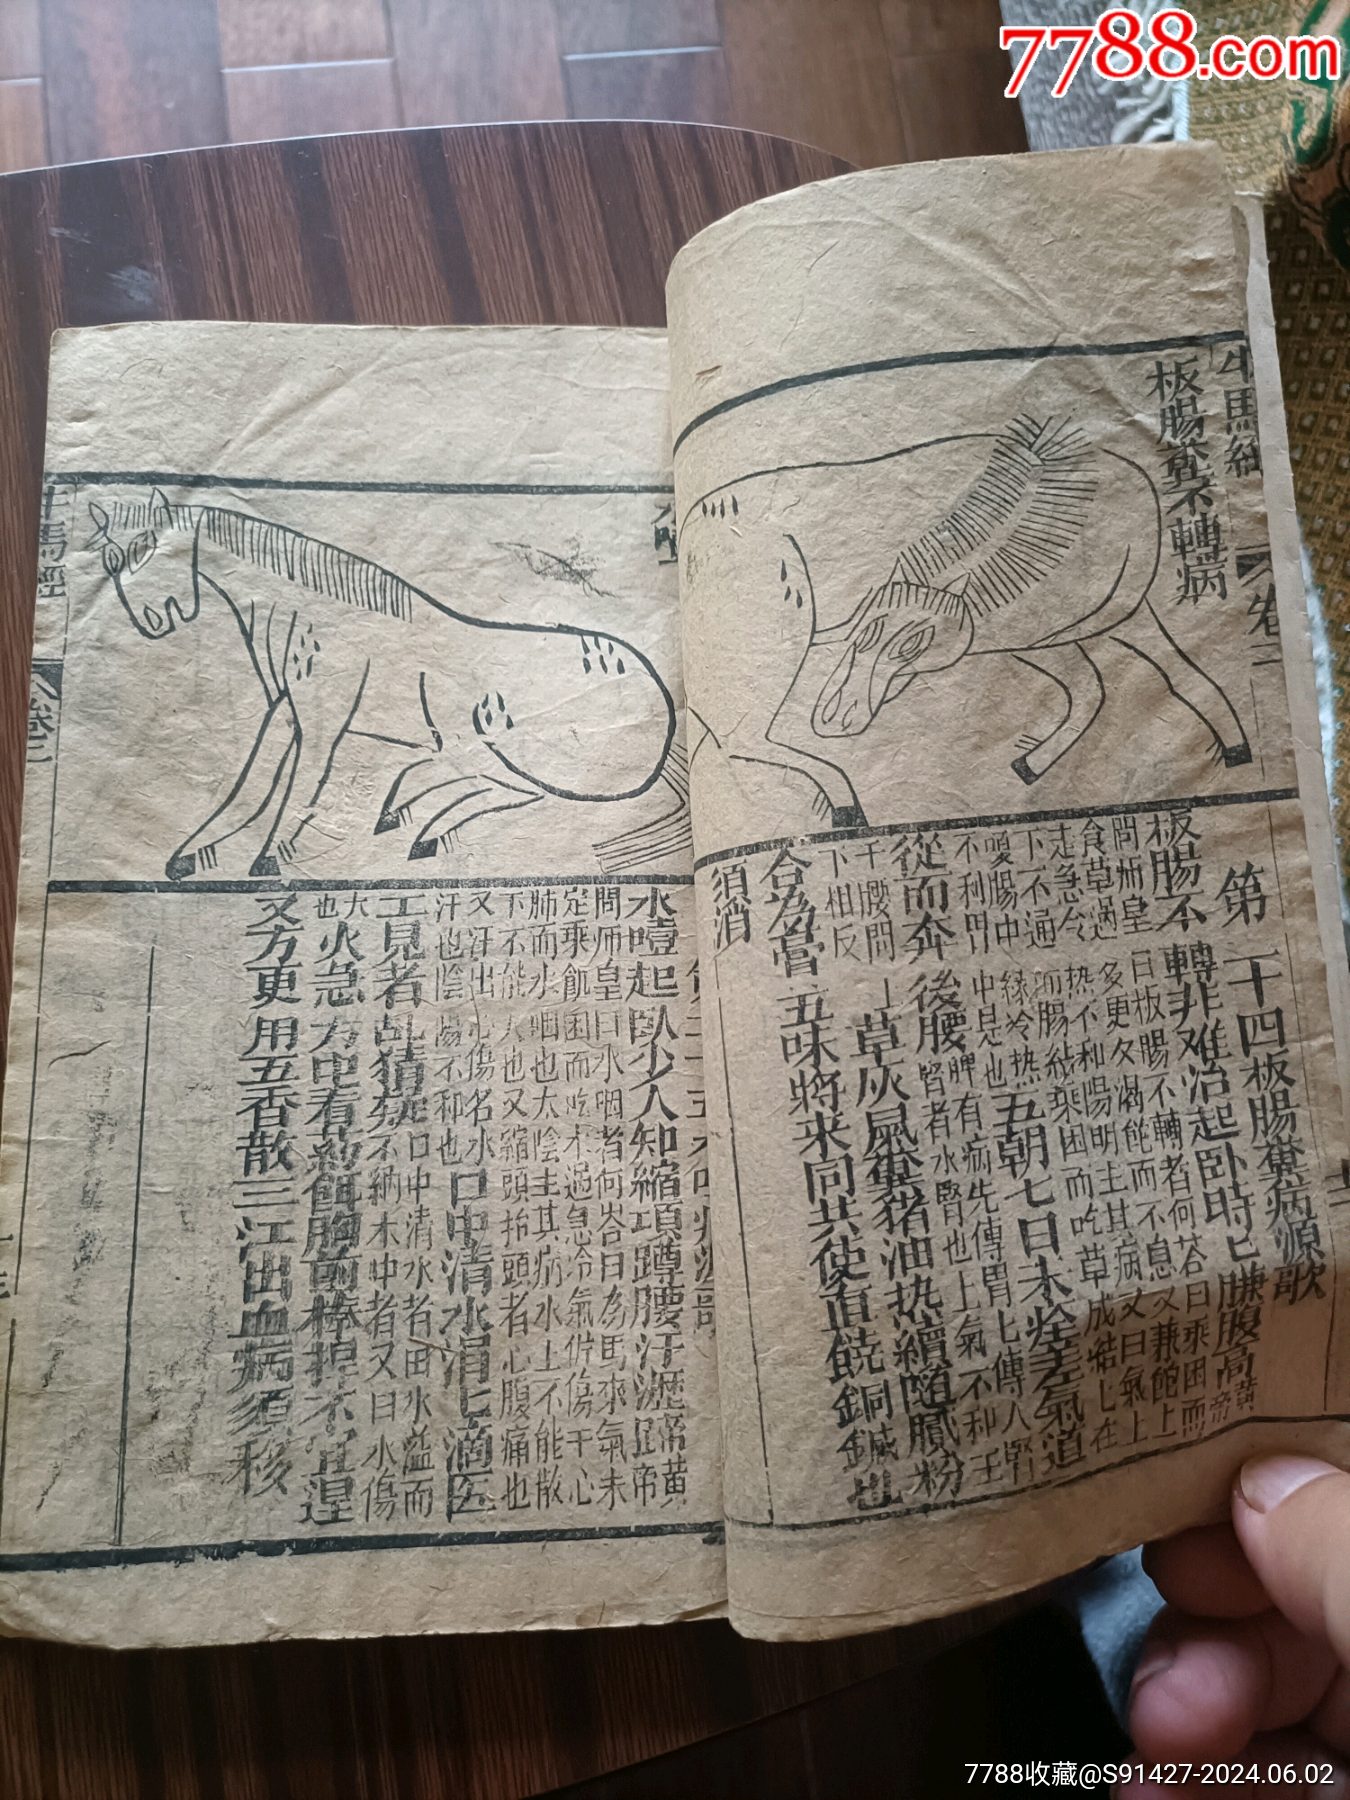 7788.com
牛馬經
卷二
板腸糞不轉病
第二十四板腸糞病源歌
板腸不轉非難治起卧時七賺腹高
問師皇曰板腸不轉者何荅曰乘困而
食草過多更久渴飽而不息又兼飽上
走急令热不和陽明主其病又曰氣上
下不通而腸結乘困而吃草成結七在
腸中緣冷热
五朝七日未痊差氣道
不利胃中是也脾有病先傳胃七傳人腎
從而奔後腰
腎者水腎也上氣不和王
于腰問
下相反
草灰鳳糞猪油热續隨膩粉
合為嘗五味將来同共使直饒銅鍼也
須消
牛馬經
卷二
水噎起臥少人知縮項蹲腰汗瀝蹄
黃
問师皇曰水咽者何荅曰為馬來氣未
定乘飢困而吃水過急冷氣併傷于心
肺而水咽也太陰主其病水上不能散
下不能入也又縮頭抬頭者心腹痛也
又汗出心傷名水
汗也陰陽不和也
口中清水涓七滴医
工見者乱猜疑
口中清水者田水溢而
不納木中者又曰水傷
也
火急方中看药餌胸前棒掉不宜遲
又方更用五香散三江出血病須移
7788收藏@S91427-2024.06.02